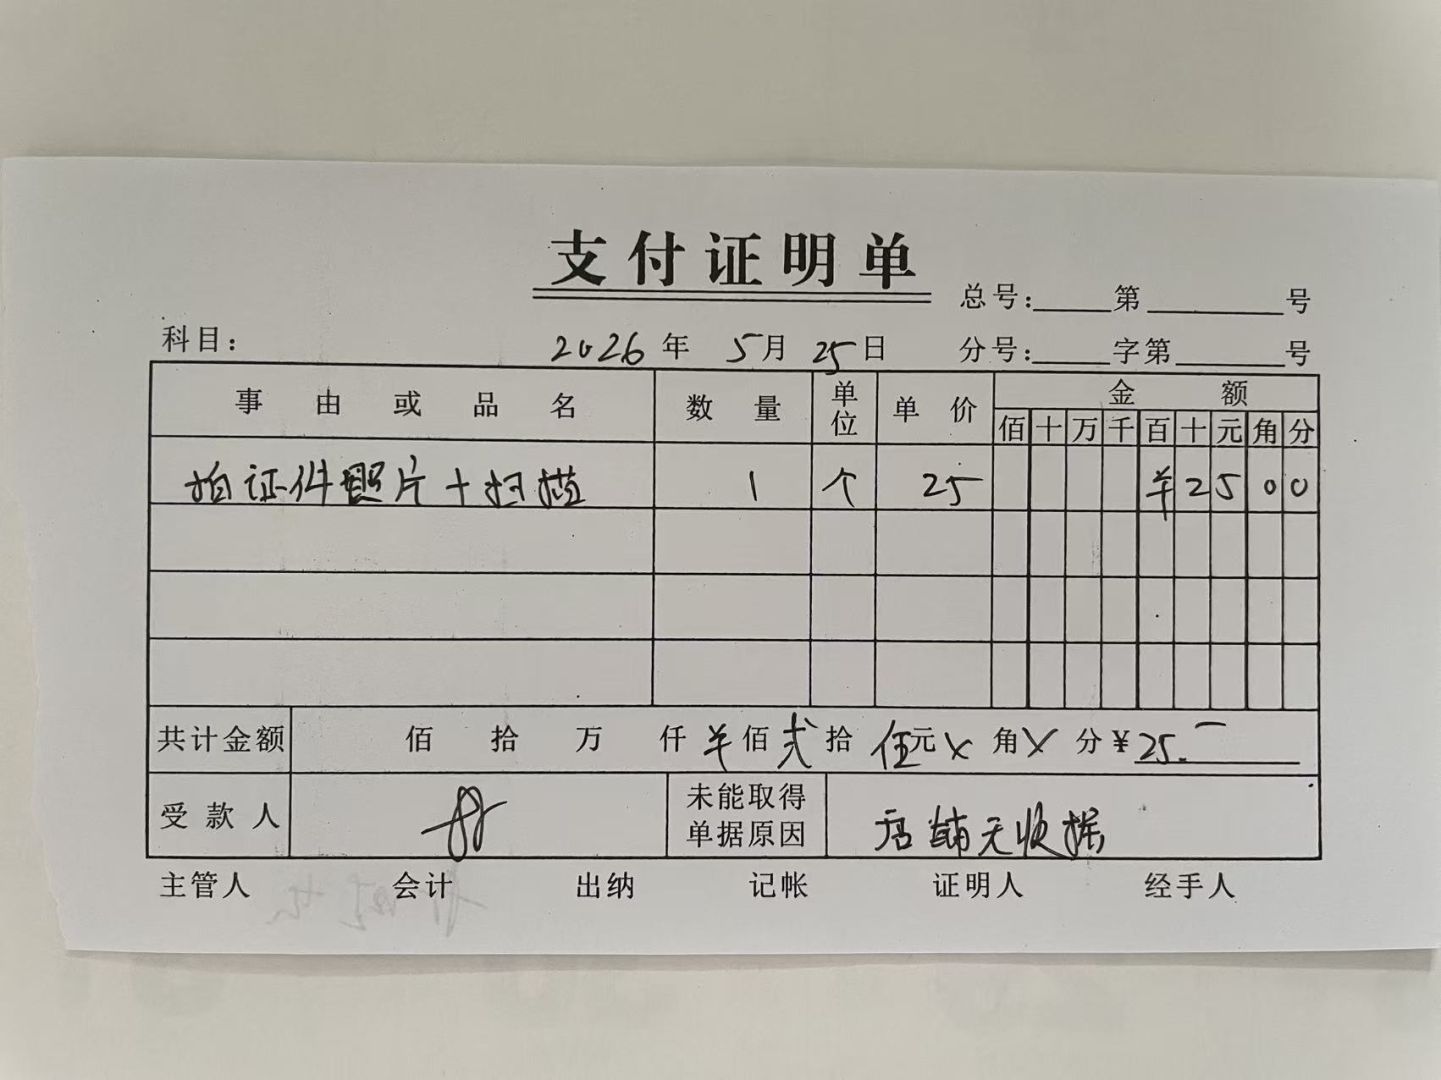 支付证明单
总号:____第______号
科目: 2026年 5月 25日 分号:____字第______号
事由或品名 数量 单位 单价 金额
佰 十 万 千 百 十 元 角 分
拍证件照片+扫描 1 个 25 ¥ 2 5 0 0
共计金额 佰 拾 万 仟 ¥ 佰 贰 拾 伍 元 X 角 X 分 ¥25.-
受款人 未能取得单据原因 店铺无收据
主管人 会计 出纳 记帐 证明人 经手人